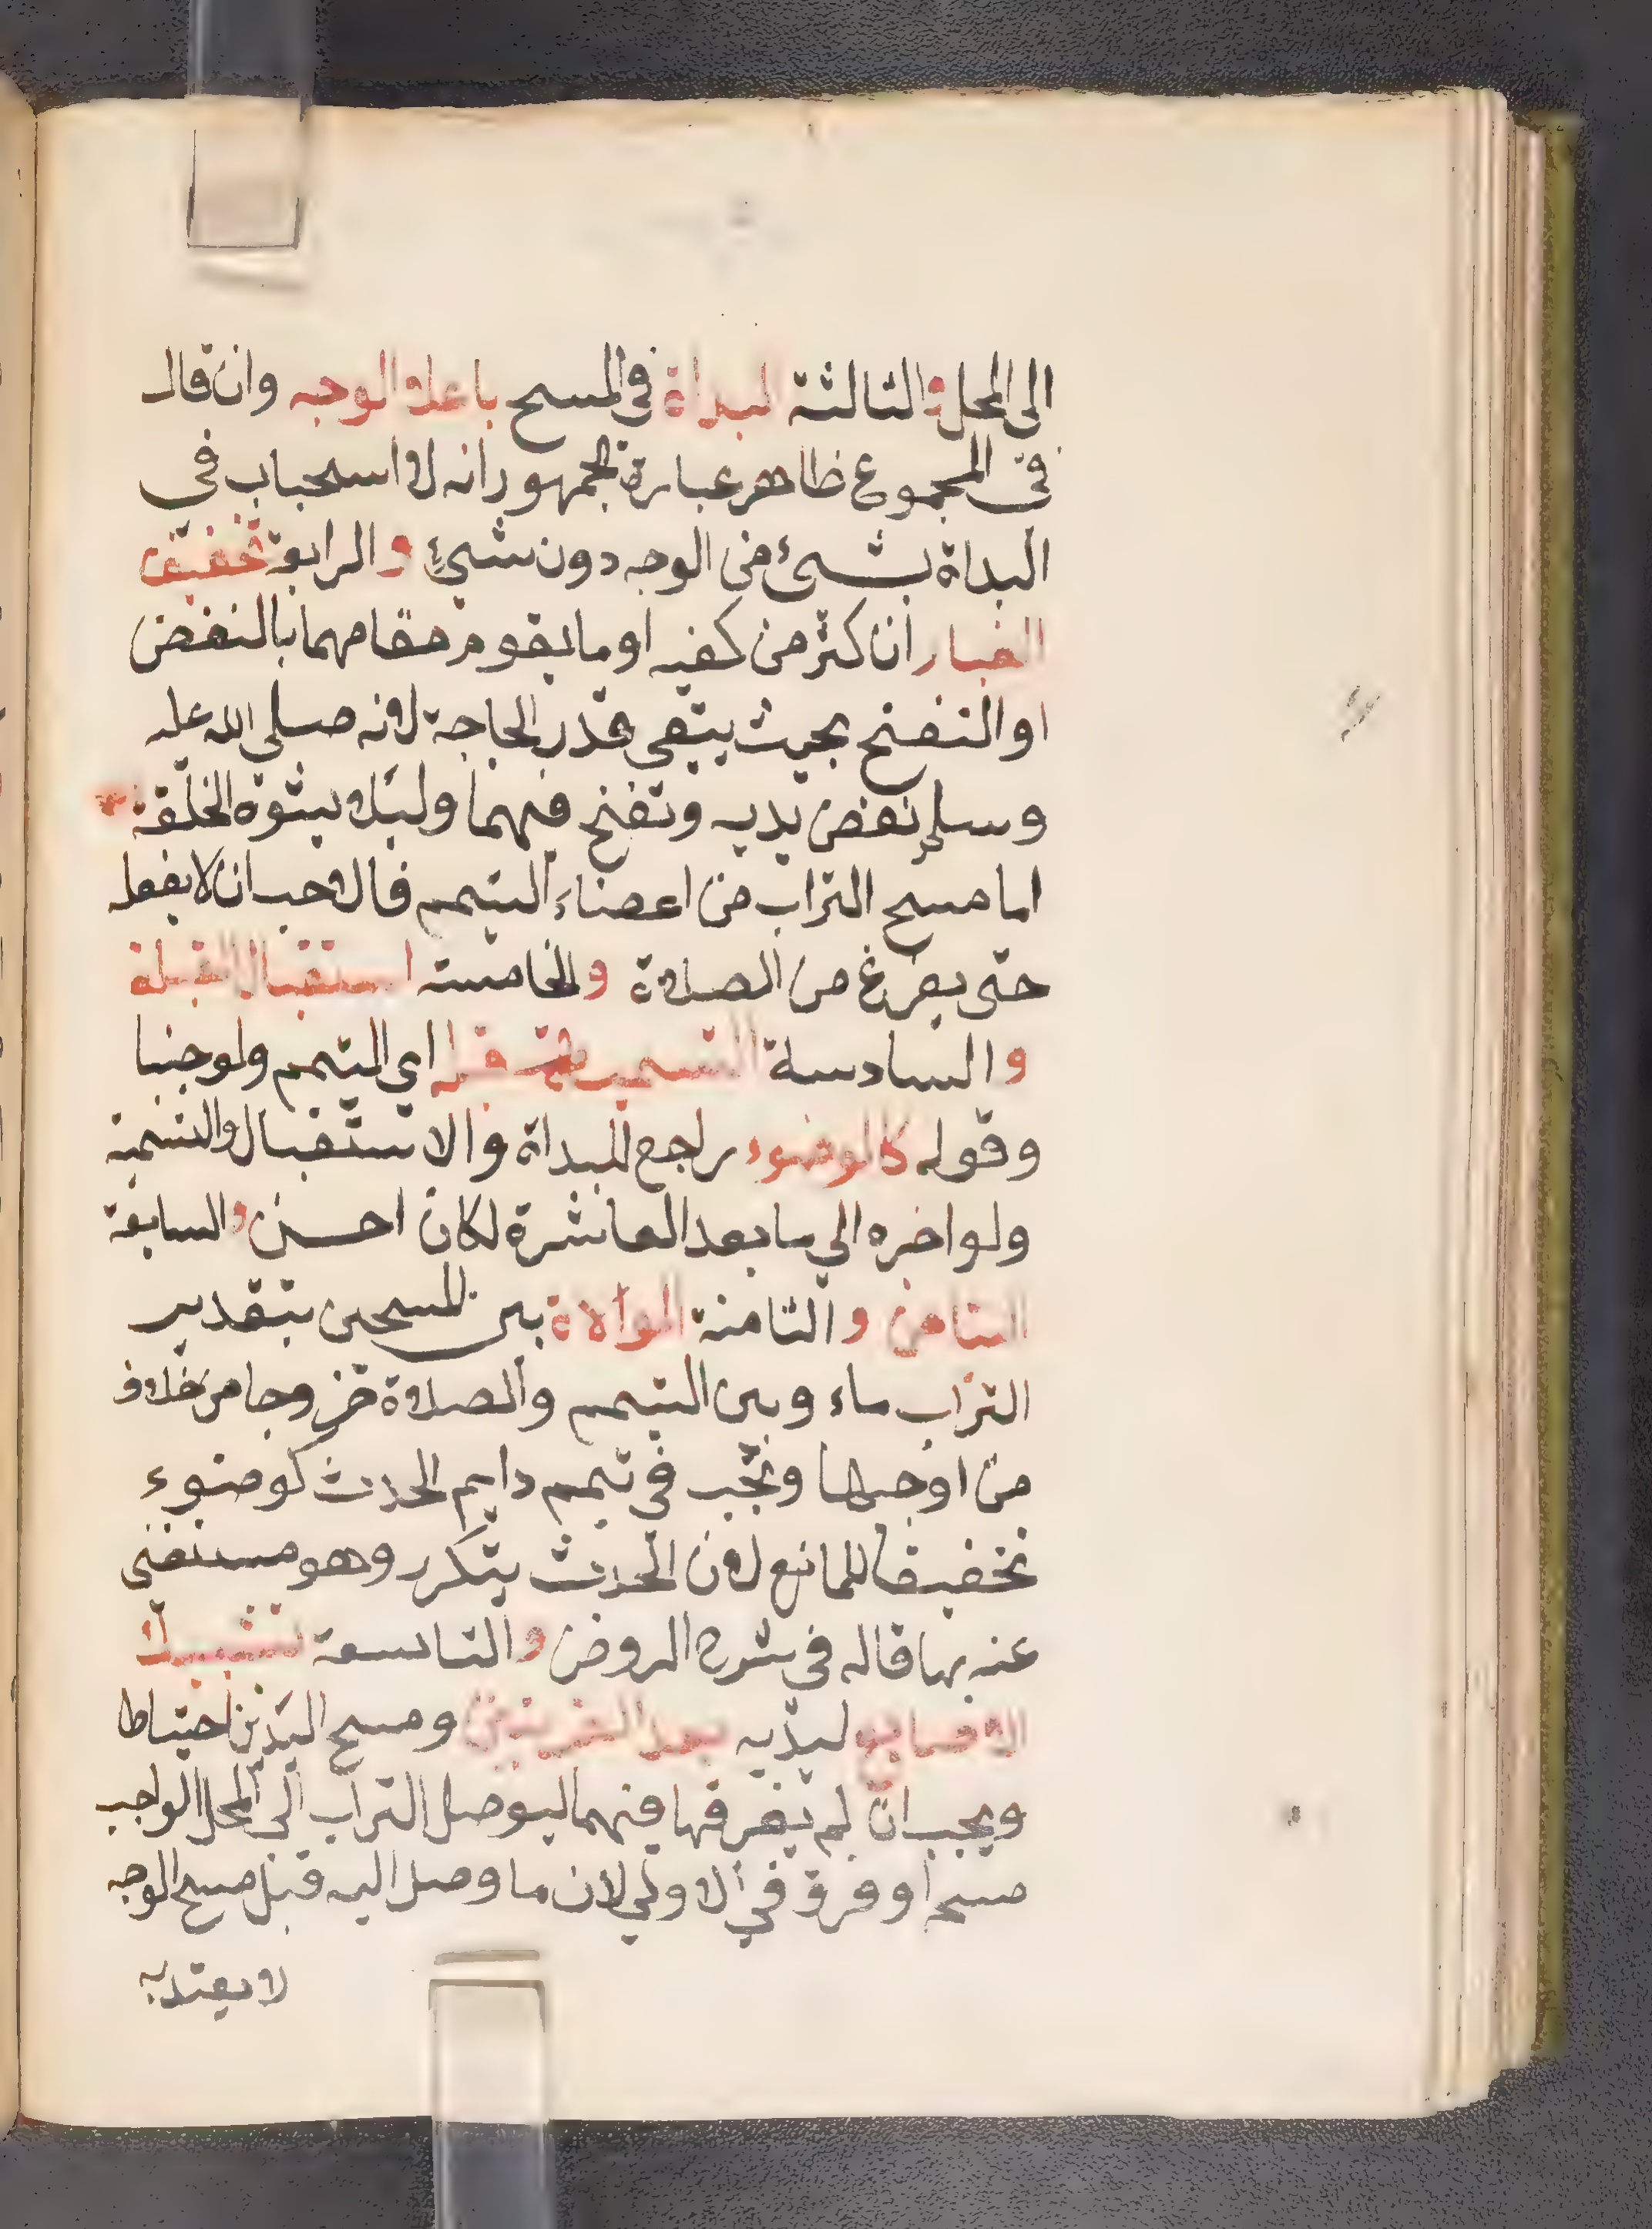 الى المحل والثالثة البداة في المسح باعلا الوجه وان قال
في المجموع ظاهر عبارة الجمهور انه لا استحباب في
البداة بشيء من الوجه دون شيء والرابعة تخفيف
الغبار ان كثر من كفيه او ما يقوم مقامهما بالنفض
او النفخ بحيث يبقى قدر الحاجة لانه صلى الله عليه
وسلم نفض يديه ونفخ فيهما وليلا يشوه الخلقة
اما مسح التراب من اعضاء التيمم فالاحب ان لا يفعل
حتى يفرغ من الصلاة والخامسة استقبال القبلة
والسادسة التسمية قبله اي التيمم ولو جنبا
وقوله كالوضوء راجع للبداة والاستقبال والتسمية
ولو اخره الي ما بعد العاشرة لكان احسن والسابعة
التيامن والثامنة الموالاة بين المسحين بتقدير
التراب ماء وبين التيمم والصلاة خروجا من خلاف
من اوجبها وتجب في تيمم دايم الحدث كوضوء
تخفيفا للمانع لان الحدث يتكرر وهو مستغني
عنه بها قاله في شرح الروض والتاسعة تشبيك
الاصابع ليديه بعد الضربتين ومسح اليدين احتياطا
ويجب ان لم يفرقها فيهما ليوصل التراب الى المحل الواجب
مسحه او فرق في الاولي لان ما وصل اليه قبل مسح الوجه
لا يعتد به